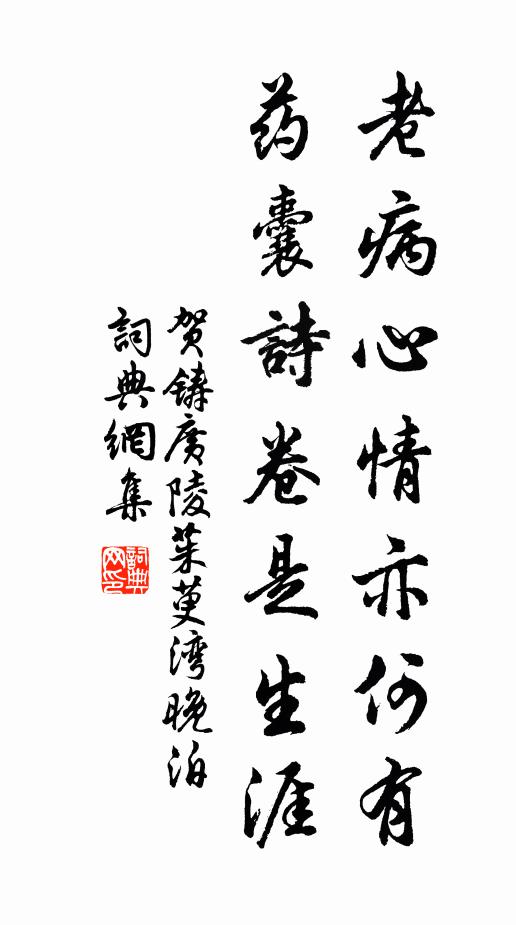 老病心情亦何有
药囊詩卷是生涯
贺鑄廣陵茱萸湾晚泊
詞典網集
詞典网印